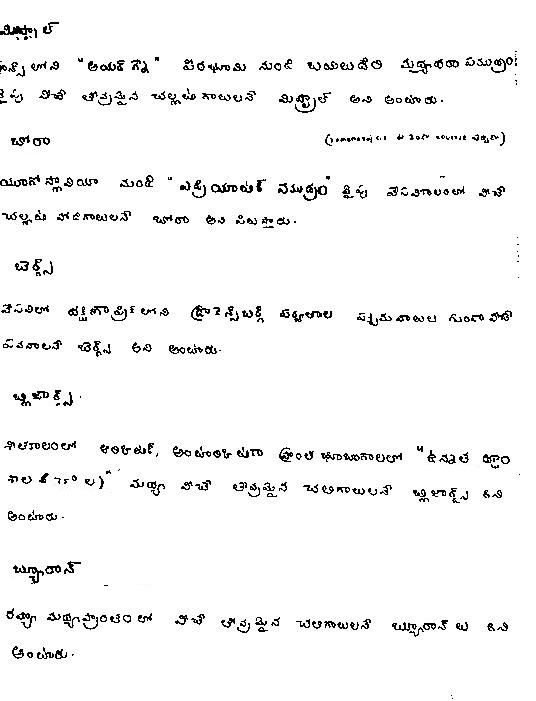 మిస్ట్రాల్
ఫ్రాన్స్ లోని "అయర్ గ్నె" పీఠభూమి నుండి బయలుదేరి మధ్యధరా సముద్రం
వైపు వీచే తీవ్రమైన చల్లటి గాలులనే మిస్ట్రాల్ అని అంటారు.
బోరా
యూగోస్లేవియా నుండి "ఎడ్రియాటిక్ సముద్రం" వైపు వేసవికాలంలో వీచే
చల్లటి పొడిగాలులనే బోరా అని పిలుస్తారు.
బెర్గ్స్
వేసవిలో దక్షిణాఫ్రికాలోని డ్రాకెన్స్‌బర్గ్ పర్వతాల పశ్చిమ వాలుల గుండా వీచే
పవనాలనే బెర్గ్స్ అని అంటారు.
బ్లిజార్డ్స్.
శీతాకాలంలో ఆర్కిటిక్, అంటార్కిటికా ప్రాంత భూభాగాలలో "ఉన్నత
మధ్య వీచే తీవ్రమైన చలిగాలులనే బ్లిజార్డ్స్ అని
అంటారు.
బ్యూరాన్
రష్యా మధ్యప్రాంతంలో వీచే తీవ్రమైన చలిగాలులనే బ్యూరాన్ లు అని
అంటారు.